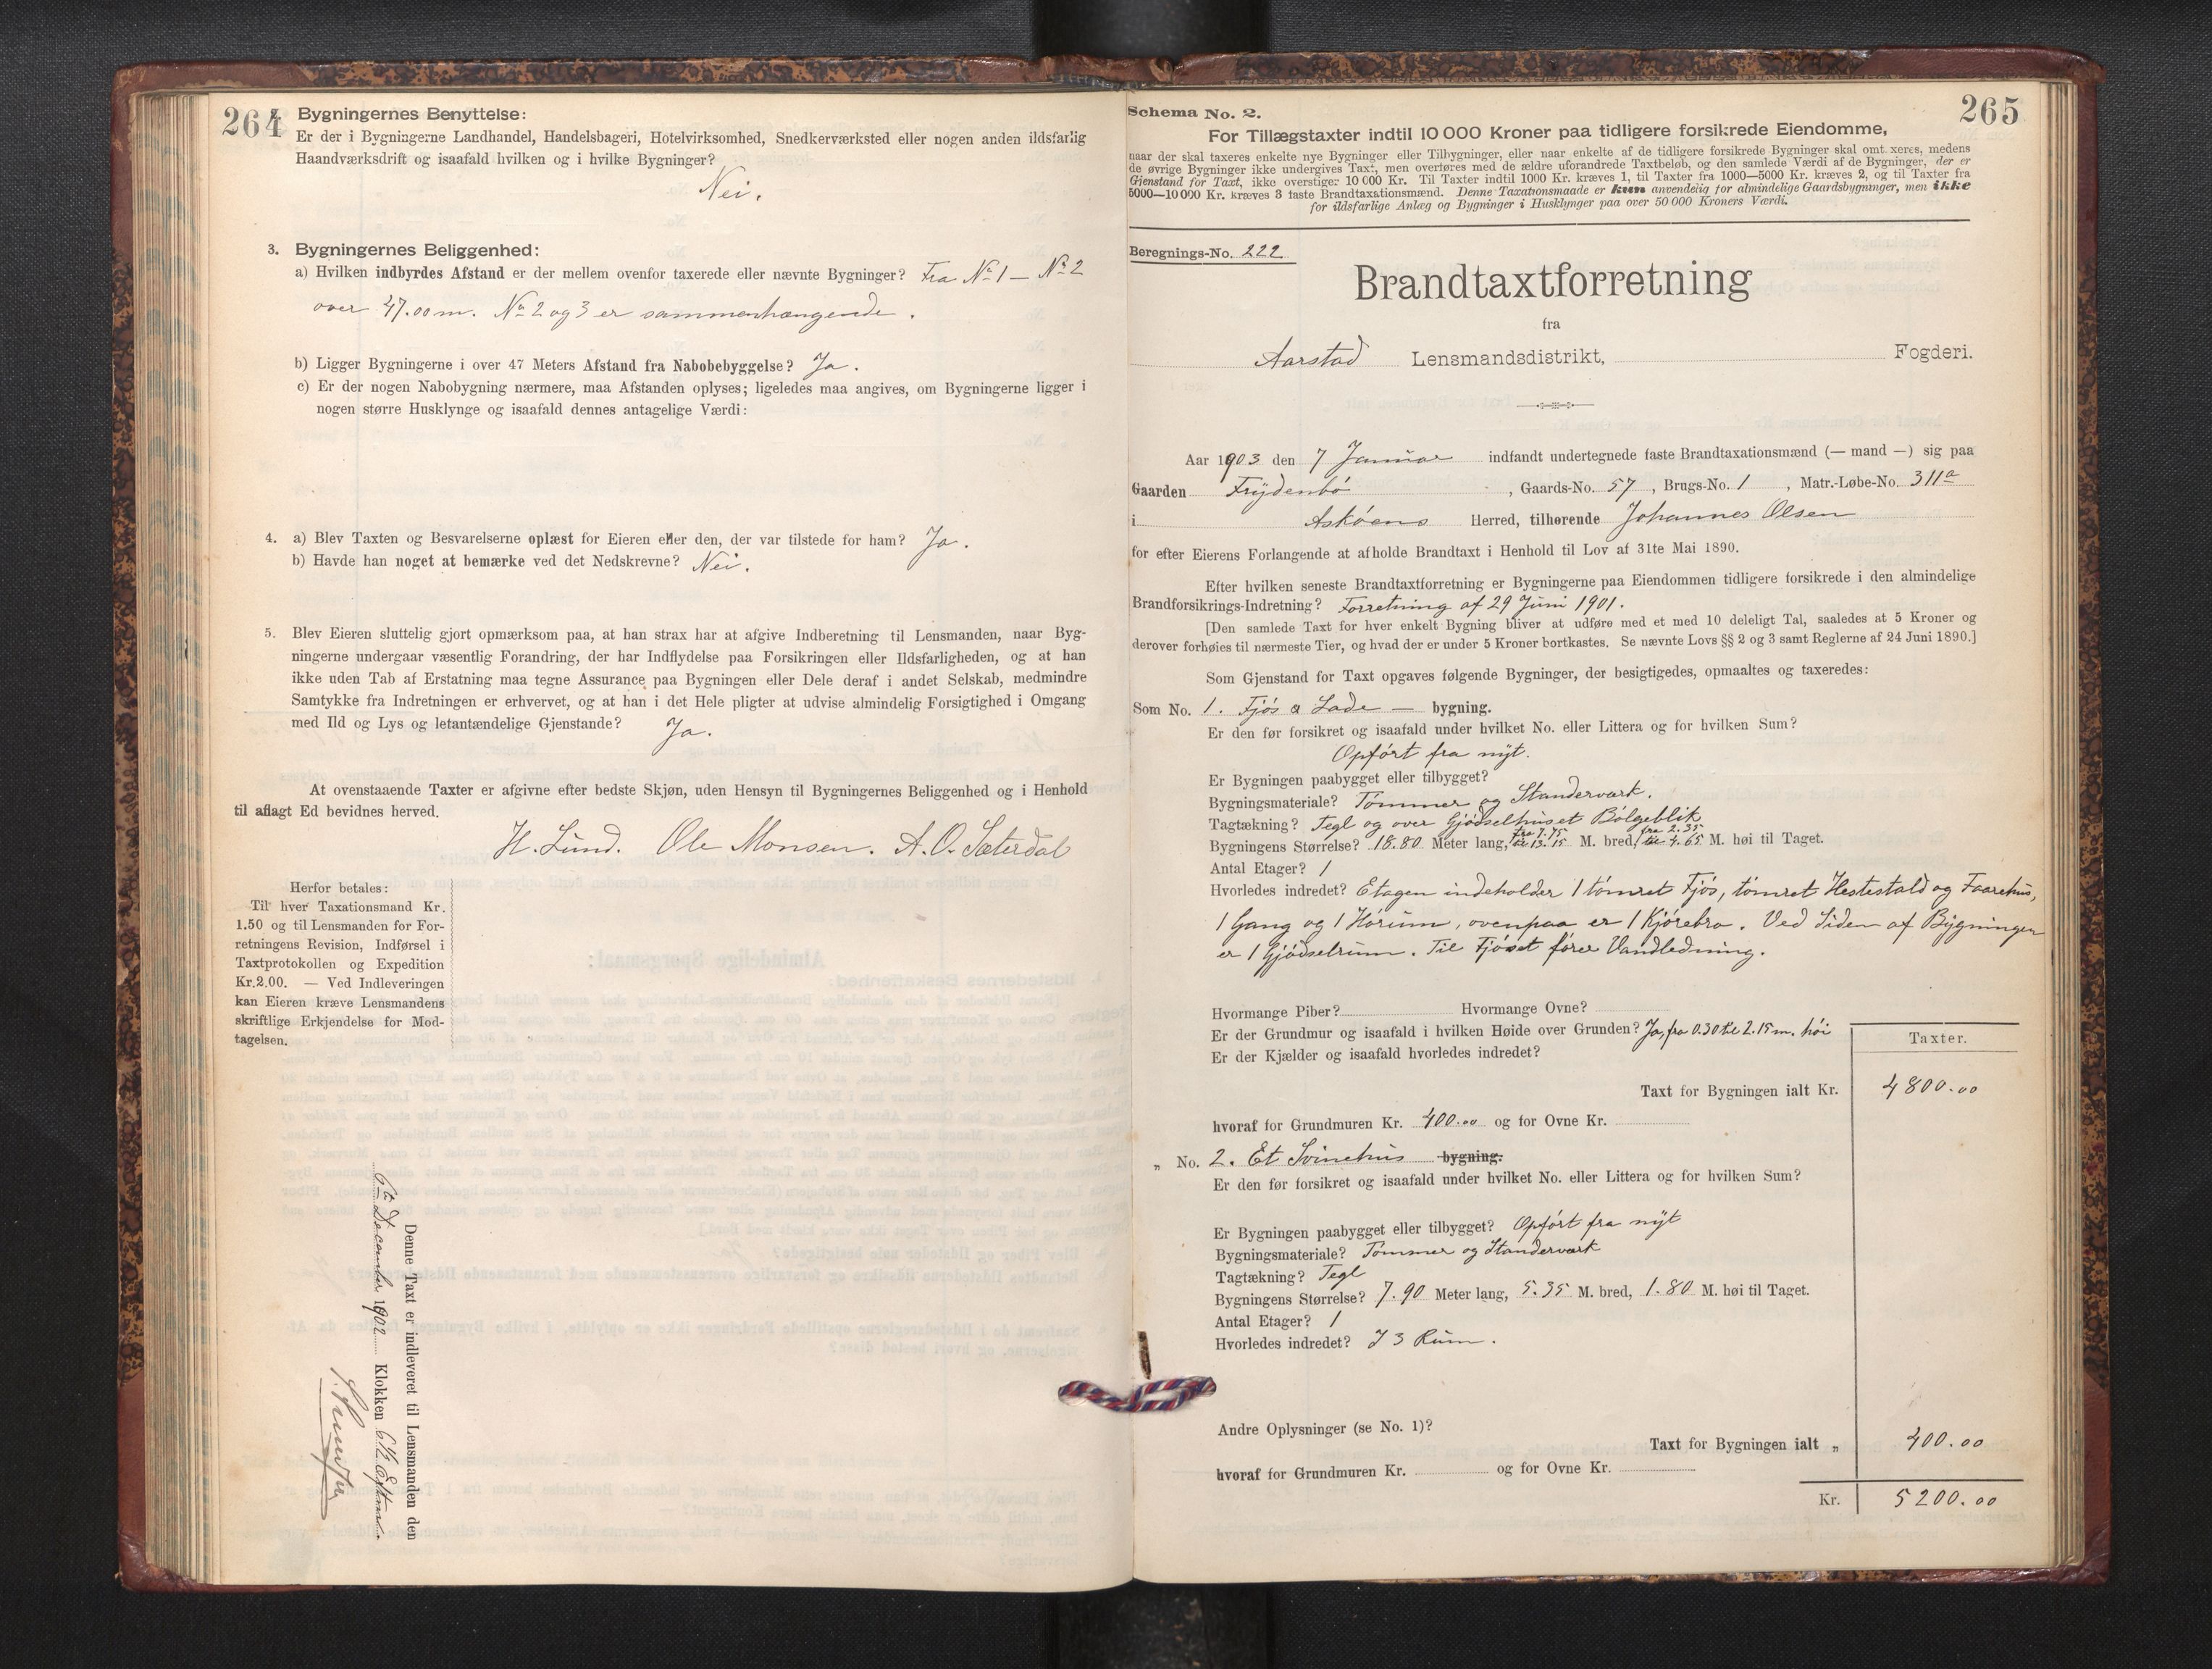 264
Bygningernes Benyttelse:
Er der i Bygningerne Landhandel, Handelsbageri, Hotelvirksomhed, Snedkerværksted eller nogen anden ildsfarlig
Haandværksdrift og isaafald hvilken og i hvilke Bygninger?
Nei.
3. Bygningernes Beliggenhed:
a) Hvilken indbyrdes Afstand er der mellem ovenfor taxerede eller nævnte Bygninger? Fra No 1 — No 2
over 47.00 m. No 2 og 3 er sammenhængende.
b) Ligger Bygningerne i over 47 Meters Afstand fra Nabobebyggelse? Ja.
c) Er der nogen Nabobygning nærmere, maa Afstanden oplyses; ligeledes maa angives, om Bygningerne ligger i
nogen større Husklynge og isaafald dennes antagelige Værdi:
4. a) Blev Taxten og Besvarelserne oplæst for Eieren eller den, der var tilstede for ham? Ja.
b) Havde han noget at bemærke ved det Nedskrevne? Nei.
5. Blev Eieren sluttelig gjort opmærksom paa, at han strax har at afgive Indberetning til Lensmanden, naar Byg-
ningerne undergaar væsentlig Forandring, der har Indflydelse paa Forsikringen eller Ildsfarligheden, og at han
ikke uden Tab af Erstatning maa tegne Assurance paa Bygningen eller Dele deraf i andet Selskab, medmindre
Samtykke fra Indretningen er erhvervet, og at han i det Hele pligter at udvise almindelig Forsigtighed i Omgang
med Ild og Lys og letantændelige Gjenstande? Ja.
At ovenstaaende Taxter er afgivne efter bedste Skjøn, uden Hensyn til Bygningernes Beliggenhed og i Henhold
til aflagt Ed bevidnes herved.
H. Lund. Ole Monsen. A. O. Sæterdal
Herfor betales:
Til hver Taxationsmand Kr.
1.50 og til Lensmanden for For-
retningens Revision, Indførsel i
Taxtprotokollen og Expedition
Kr. 2.00. — Ved Indleveringen
kan Eieren kræve Lensmandens
skriftlige Erkjendelse for Mod-
tagelsen.
Denne Taxt er indleveret til Lensmanden den
6te December 1902 Klokken 6½ Eftm.
265
Schema No. 2.
For Tillægstaxter indtil 10 000 Kroner paa tidligere forsikrede Eiendomme,
naar der skal taxeres enkelte nye Bygninger eller Tilbygninger, eller naar enkelte af de tidligere forsikrede Bygninger skal omtaxeres, medens
de øvrige Bygninger ikke undergives Taxt, men overføres med de ældre uforandrede Taxtbeløb, og den samlede Værdi af de Bygninger, der er
Gjenstand for Taxt, ikke overstiger 10 000 Kr. Til Taxter indtil 1000 Kr. kræves 1, til Taxter fra 1000—5000 Kr. kræves 2, og til Taxter fra
5000—10 000 Kr. kræves 3 faste Brandtaxationsmænd. Denne Taxationsmaade er kun anvendelig for almindelige Gaardsbygninger, men ikke
for ildsfarlige Anlæg og Bygninger i Husklynger paa over 50 000 Kroners Værdi.
Beregnings-No. 222
Brandtaxtforretning
fra
Aarstad Lensmandsdistrikt, Fogderi.
Aar 1903 den 7 Januar indfandt undertegnede faste Brandtaxationsmænd (— mand —) sig paa
Gaarden Frydenbö, Gaards-No. 57, Brugs-No. 1, Matr.-Løbe-No. 311a
i Asköens Herred, tilhørende Johannes Olsen
for efter Eierens Forlangende at afholde Brandtaxt i Henhold til Lov af 31te Mai 1890.
Efter hvilken seneste Brandtaxtforretning er Bygningerne paa Eiendommen tidligere forsikrede i den almindelige
Brandforsikrings-Indretning? Forretning af 29 Juni 1901.
[Den samlede Taxt for hver enkelt Bygning bliver at udføre med et med 10 deleligt Tal, saaledes at 5 Kroner og
derover forhøies til nærmeste Tier, og hvad der er under 5 Kroner bortkastes. Se nævnte Lovs §§ 2 og 3 samt Reglerne af 24 Juni 1890.]
Som Gjenstand for Taxt opgaves følgende Bygninger, der besigtigedes, opmaaltes og taxeredes:
Som No. 1. Fjös & Lade — bygning.
Er den før forsikret og isaafald under hvilket No. eller Littera og for hvilken Sum?
Opfört fra nyt.
Er Bygningen paabygget eller tilbygget?
Bygningsmateriale? Tømmer og Standerværk.
Tagtækning? Tegl og over Gjödselhuset Bölgeblik
Bygningens Størrelse? 18.80 Meter lang, fra 7.75 til 13.15 M. bred, fra 2.35 til 4.65 M. høi til Taget.
Antal Etager? 1
Hvorledes indredet? Etagen indeholder 1 tömret Fjös, tömret Hestestald og Faarehus,
1 Gang og 1 Hörum, ovenpaa er 1 Kjörebro. Ved Siden af Bygningen
er 1 Gjödselrum. Til Fjöset fører Vandledning.
Hvormange Piber? Hvormange Ovne?
Er der Grundmur og isaafald i hvilken Høide over Grunden? Ja, fra 0.30 til 2.15 m. höi
Er der Kjælder og isaafald hvorledes indredet?
Taxter.
Taxt for Bygningen ialt Kr. 4800.00
hvoraf for Grundmuren Kr. 400.00 og for Ovne Kr.
„ No. 2. Et Svinehus bygning.
Er den før forsikret og isaafald under hvilket No. eller Littera og for hvilken Sum?
Er Bygningen paabygget eller tilbygget? Opfört fra nyt
Bygningsmateriale? Tømmer og Standerværk
Tagtækning? Tegl
Bygningens Størrelse? 7.90 Meter lang, 5.35 M. bred, 1.80 M. høi til Taget.
Antal Etager? 1
Hvorledes indredet? I 3 Rum.
Andre Oplysninger (se No. 1)?
Taxt for Bygningen ialt „ 400.00
hvoraf for Grundmuren Kr. og for Ovne Kr.
Kr. 5200.00